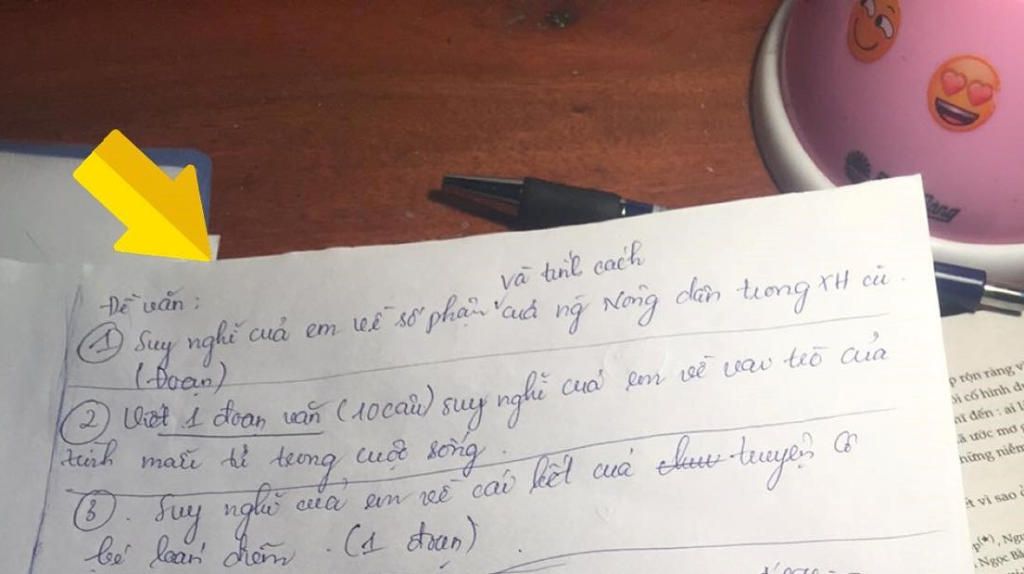 Đề văn :
và tính cách
① Suy nghĩ của em về số phận ˅ của ng̃ Nông dân trong XH cũ .
(Đoạn)
② Viết 1 đoạn văn (10 câu) suy nghĩ của em về vai trò của
tình mẫu tử trong cuộc sống .
③ . Suy nghĩ của em về cái kết của truyện Cô
bé bán diêm . (1 đoạn) .
p rộn ràng v
cố hình d
đến : ai l
ã ước mơ
những niềm
ết vì sao
p(*), Ngu
Ngọc Bả